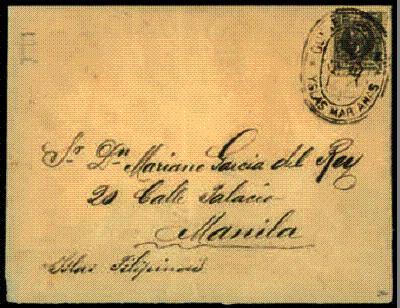 YSLAS MARIANAS
Sr. Dn. Mariano Garcia del Rey
20 Calle Palacio
Manila
Islas Filipinas